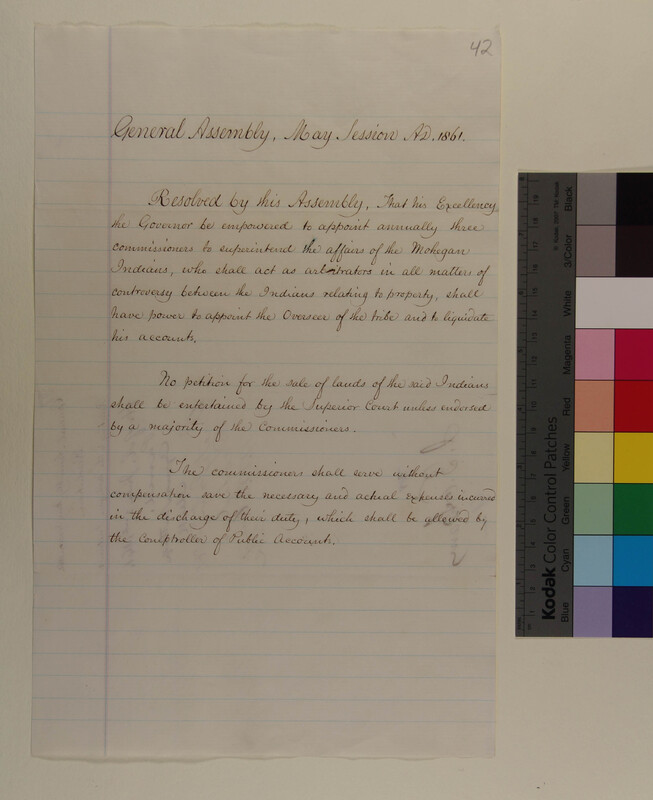 42
General Assembly, May Session AD. 1861.
Resolved by this Assembly, That his Excellency
the Governor be empowered to appoint annually three
commissioners to superintend the affairs of the Mohegan
Indians, who shall act as arbitrators in all matters of
controversy between the Indians relating to property, shall
have power to appoint the Overseer of the tribe and to liquidate
his accounts.
No petition for the sale of lands of the said Indians
shall be entertained by the Superior Court unless endorsed
by a majority of the Commissioners.
The commissioners shall serve without
compensation save the necessary and actual expenses incurred
in the discharge of their duty, which shall be allowed by
the Comptroller of Public Accounts.
Kodak Color Control Patches
Blue
Cyan
Green
Yellow
Red
Magenta
White
3/Color
Black